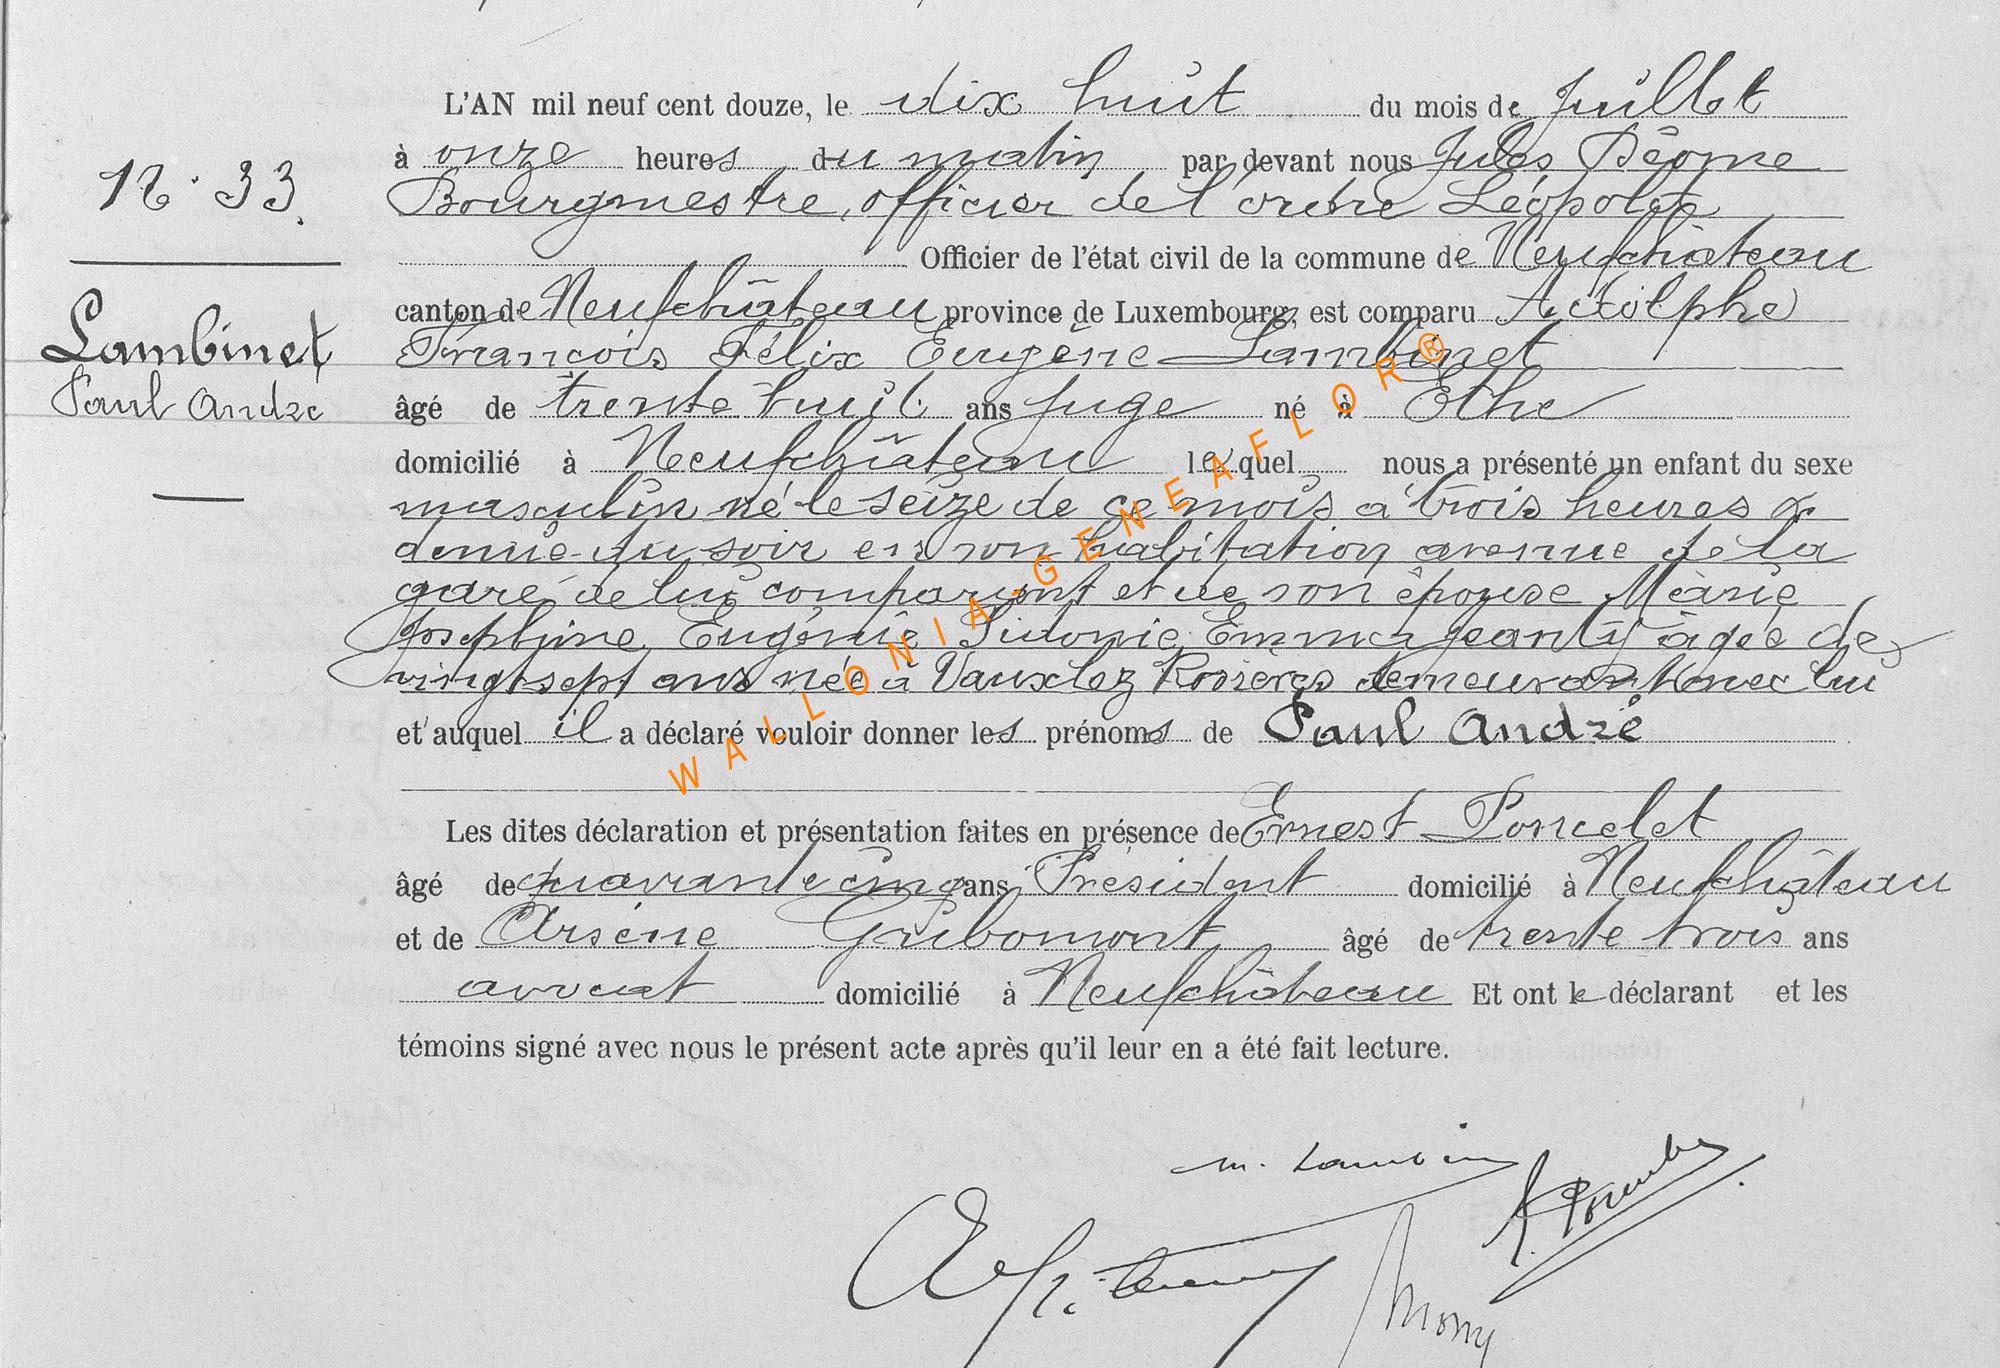 L'AN mil neuf cent douze, le dix huit du mois de Juillet
à onze heures du matin par devant nous Jules
N° 33.
Bourgmestre, officier de l'ordre Léopold
Officier de l'état civil de la commune de Neufchâteau
canton de Neufchâteau province de Luxembourg, est comparu Adolphe
Lambinet
François Félix Eugène Lambinet
Paul André
âgé de trente huit ans juge né à Ethe
domicilié à Neufchâteau lequel nous a présenté un enfant du sexe
masculin né le seize de ce mois à trois heures &
demie du soir en son habitation avenue de la
gare, de lui comparant et de son épouse Marie
Joséphine Eugénie Sidonie Emma Jeanty âgée de
vingt sept ans née à Vaux lez Rosières demeurant avec lui
et auquel il a déclaré vouloir donner les prénoms de Paul André
Les dites déclaration et présentation faites en présence de Ernest Poncelet
âgé de quarante cinq ans Président domicilié à Neufchâteau
et de Arsène Gribomont âgé de trente trois ans
avocat domicilié à Neufchâteau Et ont le déclarant et les
témoins signé avec nous le présent acte après qu'il leur en a été fait lecture.
WALLONIA-GENEAFLOR®